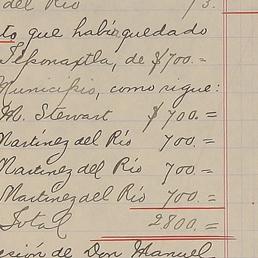 del Río 73.
to que había quedado
Teponaxtla, de $700.=
Municipio, como sigue:
M. Stewart $700.=
Martínez del Río 700.=
Martínez del Río 700.=
Martínez del Río 700.=
Total 2800.=
esión de Don Manuel